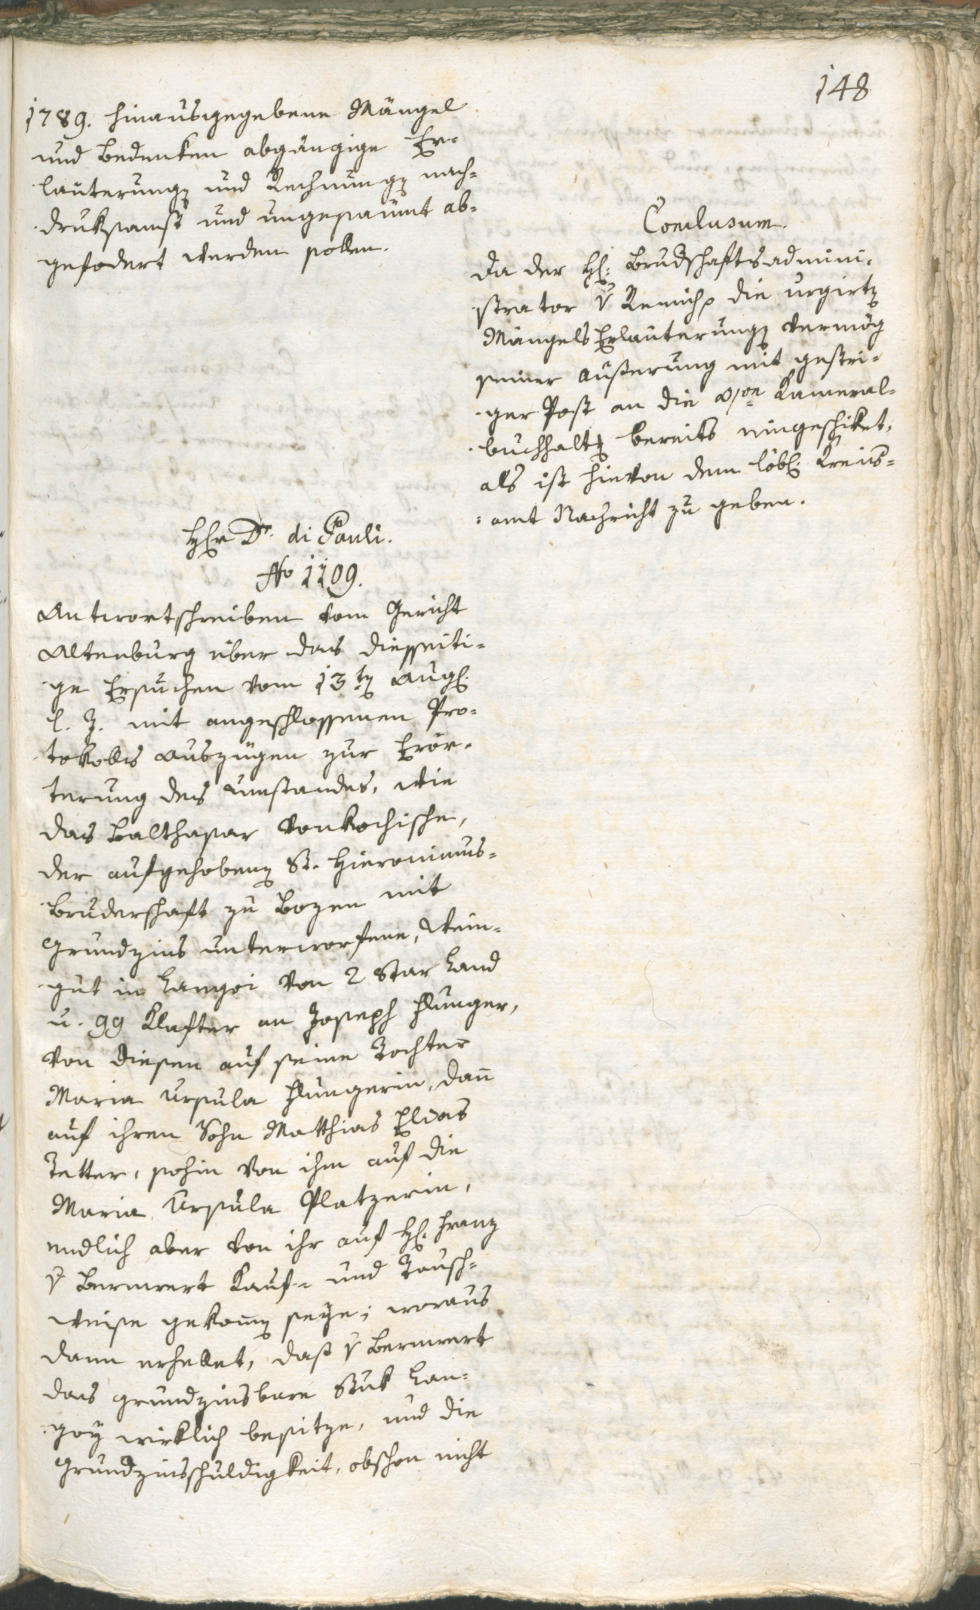 148
1789. hinausgegebene Mängel
und Bedenken abgängige Er-
läuterungen und Rechnungen nach-
druksamst und ungesäumt ab-
gefodert werden sollen.
Conclusum.
Da der H: Brudschaftsadmini-
strator v Remich die urgirten
Mängels Erläuterungen vermög
seiner Äußerung mit gestri-
ger Post an die Kameral-
buchhaltg bereits eingeschiket,
als ist hievon dem löbl: Kreis-
amt Nachricht zu geben.
Hhr Dr. di Pauli.
No 1109.
Antwortschreiben vom Gericht
Altenburg über das diesseiti-
ge Ersuchen vom 13ten Aug:
l. J. mit angeschlossenen Pro-
tokolls Auszügen zur Erör-
terung des Umstandes, wie
das Balthasar Vonkochische,
der aufgehobenen St. Hieronimus-
Bruderschaft zu Bozen mit
Grundzins unterworfene, Wein-
gut in Langoi von 2 Star Land
u. 99 Klafter an Joseph Hunger,
von diesen auf seine Tochter
Maria Ursula Hungerin, dann
auf ihren Sohn Matthias Elias
Tetter, sohin von ihm auf die
Maria Ursula Platzerin,
endlich aber von ihr auf H: Franz
v Bermert Kauf- und Tausch-
weise gekommen seye; woraus
dann erhellet, daß v Bermert
das grundzinsbare Stuk Lan-
goy wirklich besitze, und die
Grundzinsschuldigkeit, obschon nicht